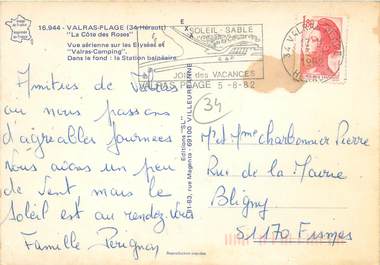 16.944 - VALRAS-PLAGE (34 Hérault)
"La Côte des Roses"
Vue aérienne sur les Elysées et
Valras-Camping".
Dans le fond : la Station balnéaire.
SOLEIL - SABLE
JOIE des VACANCES
PLAGE 5-8-82
34 VALRAS
34
Amitiés de Valras
où nous passons
d'agréables journées
Nous avons un peu
de vent mais le
Soleil est au rendez-vous
Famille Perignon
Editions "SL"
rue Magenta - 69100 VILLEURBANNE
Mr et Mme Charbonnier Pierre
Rue de la Mairie
Bligny
51170 Fismes
Reproduction interdite